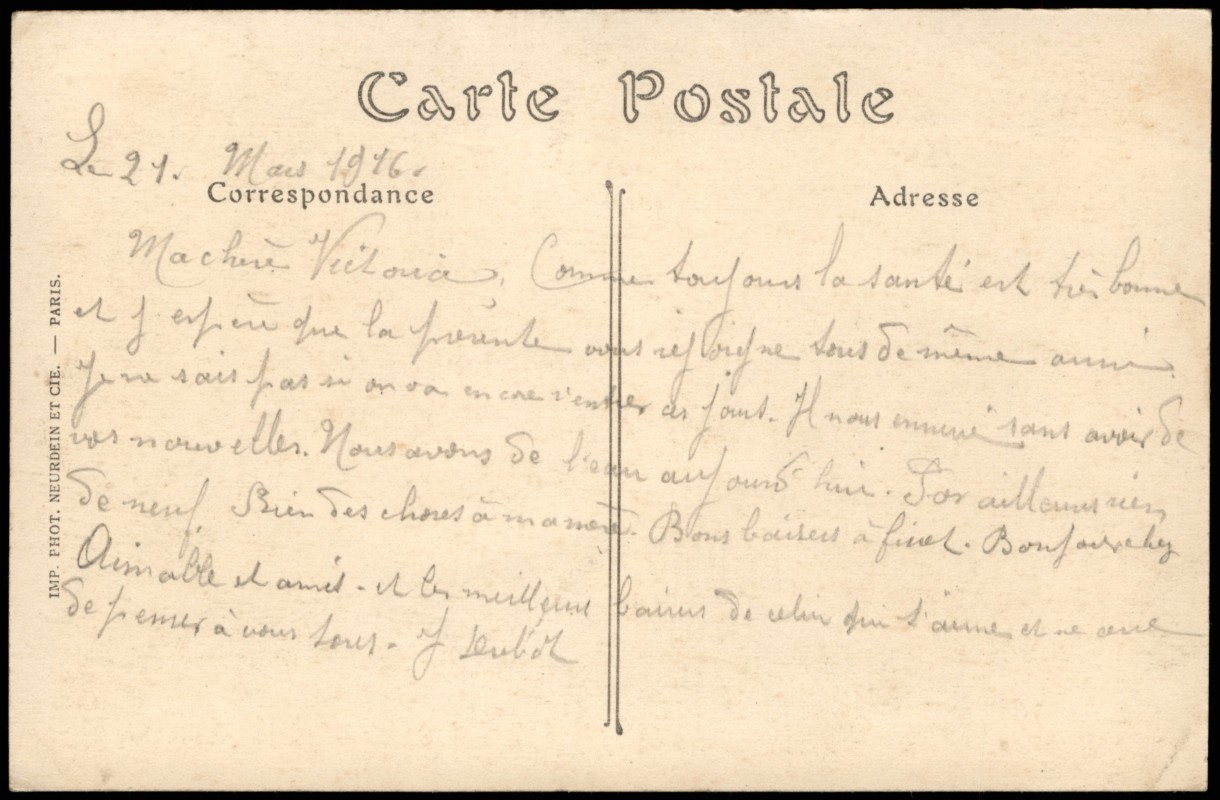 Carte Postale
Le 21. Mars 1916.
Correspondance
Adresse
Ma chère Victoria, Comme toujours la santé est très bonne
et j'espère que la présente vous rejoigne tous de même aussi.
Je ne sais pas si on va encore rentrer ces jours. Il nous ennuie sans avoir de
vos nouvelles. Nous avons de l'eau aujourd'hui. Par ailleurs rien
de neuf. Bien des choses à ma mère. Bons baisers à Bonjour chez
Aimable et amis - et les meilleurs baisers de celui qui t'aime et ne cesse
de penser à vous tous. J
IMP. PHOT. NEURDEIN ET CIE. — PARIS.